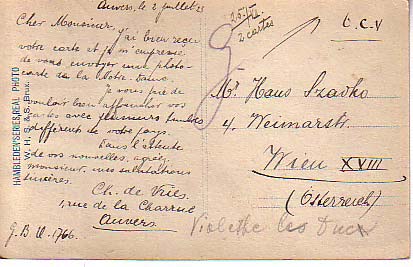 Anvers le 2 juillet 23
Cher Monsieur,
j'ai bien reçu
votre carte et je m'empresse
de vous envoyer une photo-
carte de la
Je vous prie de
vouloir bien affranchir vos
cartes avec plusieurs timbres
différents de votre pays.
Dans l'attente
de vos nouvelles, agréez
monsieur, mes salutations
sincères.
Ch. de Vries
1, rue de la Charrue
Anvers
G.B.U. 1766.
HAMBLEDEN SERIES REAL PHOTO
W.H.S. & S.
2 cartes
L.C.V
Mr. Hans Szadko
4. Weimarstr.
Wien XVIII
(Österreich)
Violette les Deux